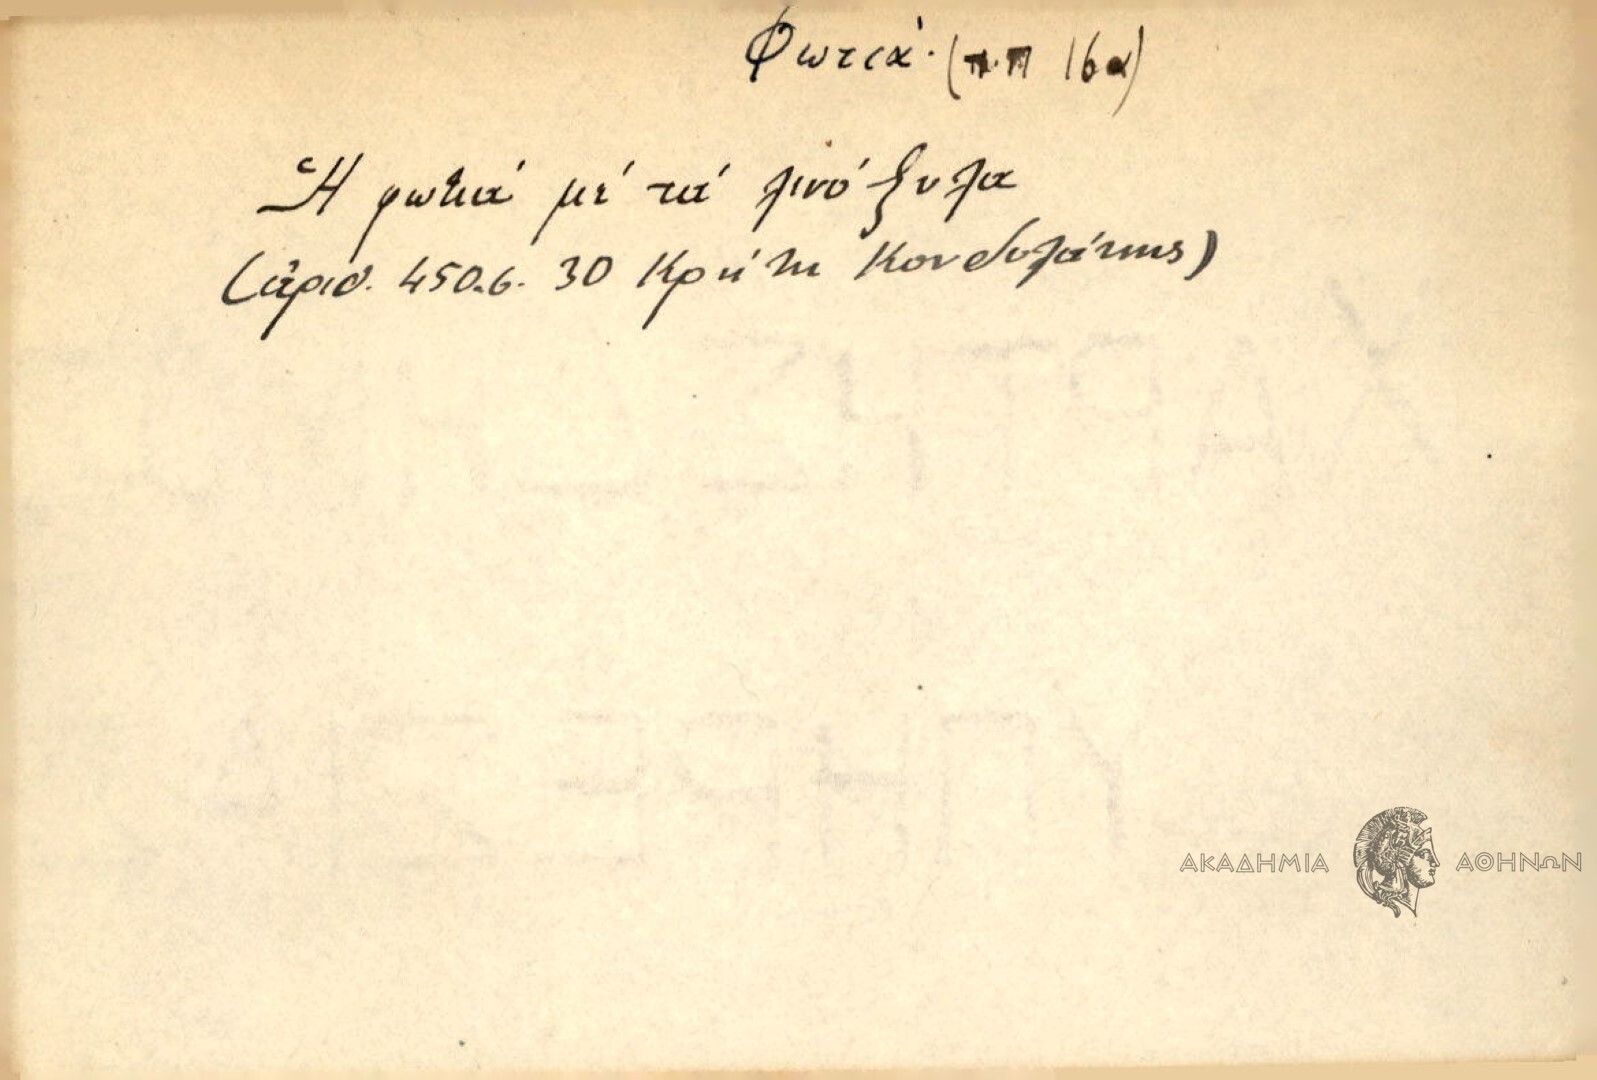 Φωτιά. (π.π 16α)
Ἡ φωτιά μέ τά λινόξυλα
(ἀριθ. 450.6. 30 Κρήτη Κονδυλάκης)
ΑΚΑΔΗΜΙΑ ΑΘΗΝΩΝ